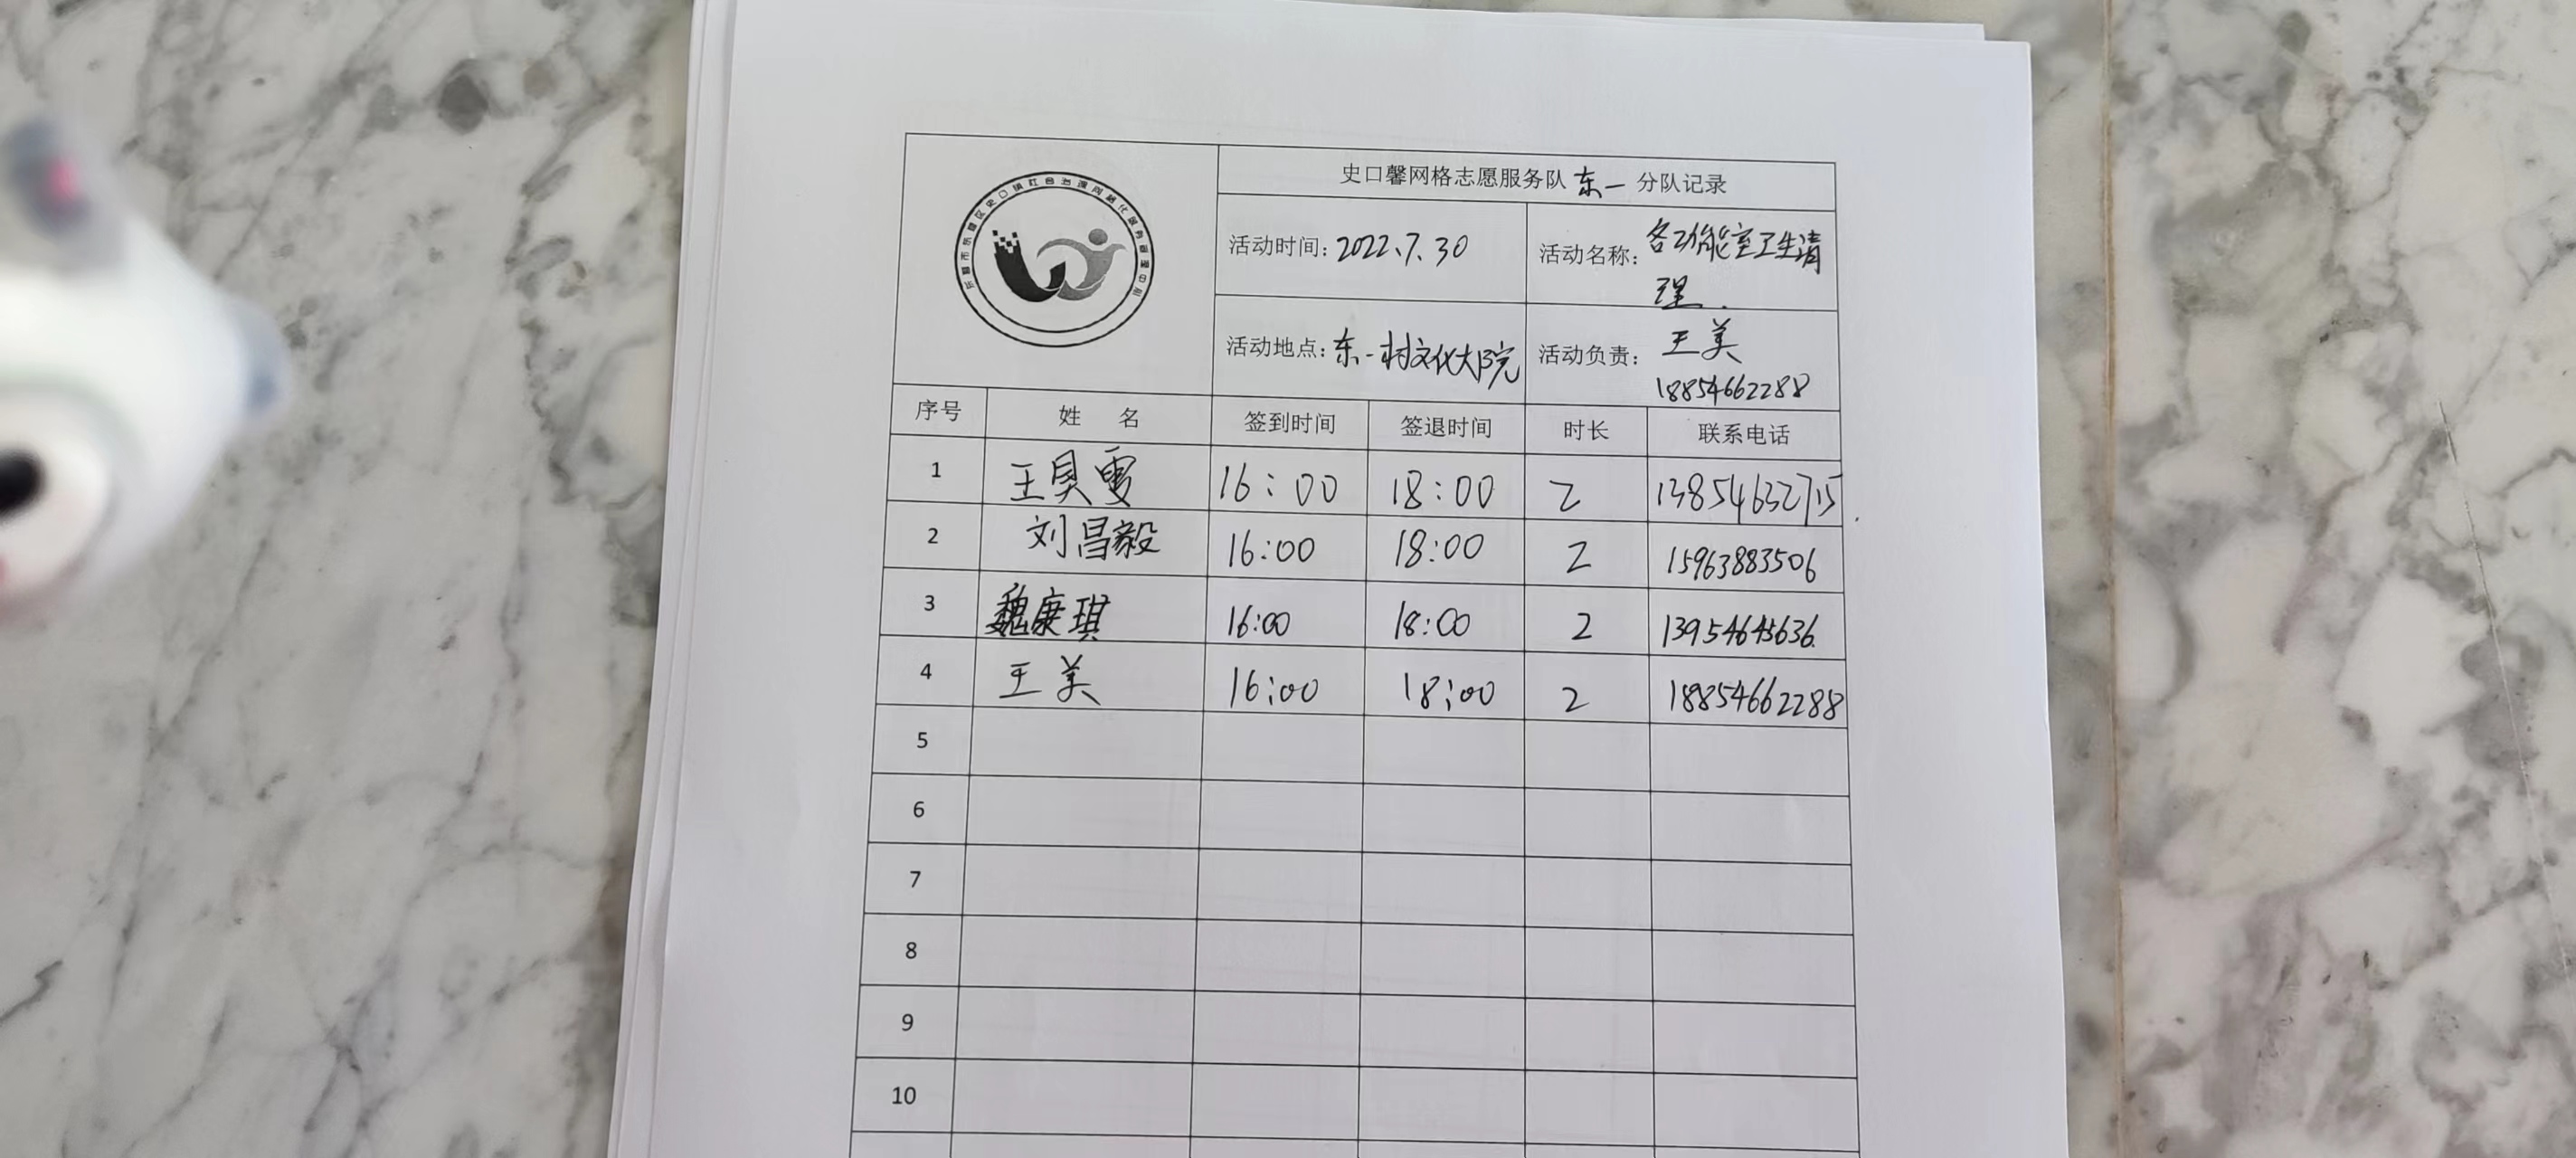 东营市东营区史口镇社会治理网格化服务管理中心
史口馨网格志愿服务队 东一 分队记录
活动时间: 2022.7.30 活动名称: 各功能室卫生清
理.
活动地点: 东一村文化大院 活动负责: 王美
18854662288
序号 姓 名 签到时间 签退时间 时长 联系电话
1 王贝雯 16:00 18:00 2 13854632715
2 刘昌毅 16:00 18:00 2 15963883506
3 魏庚琪 16:00 18:00 2 13954645636
4 王美 16:00 18:00 2 18854662288
5
6
7
8
9
10